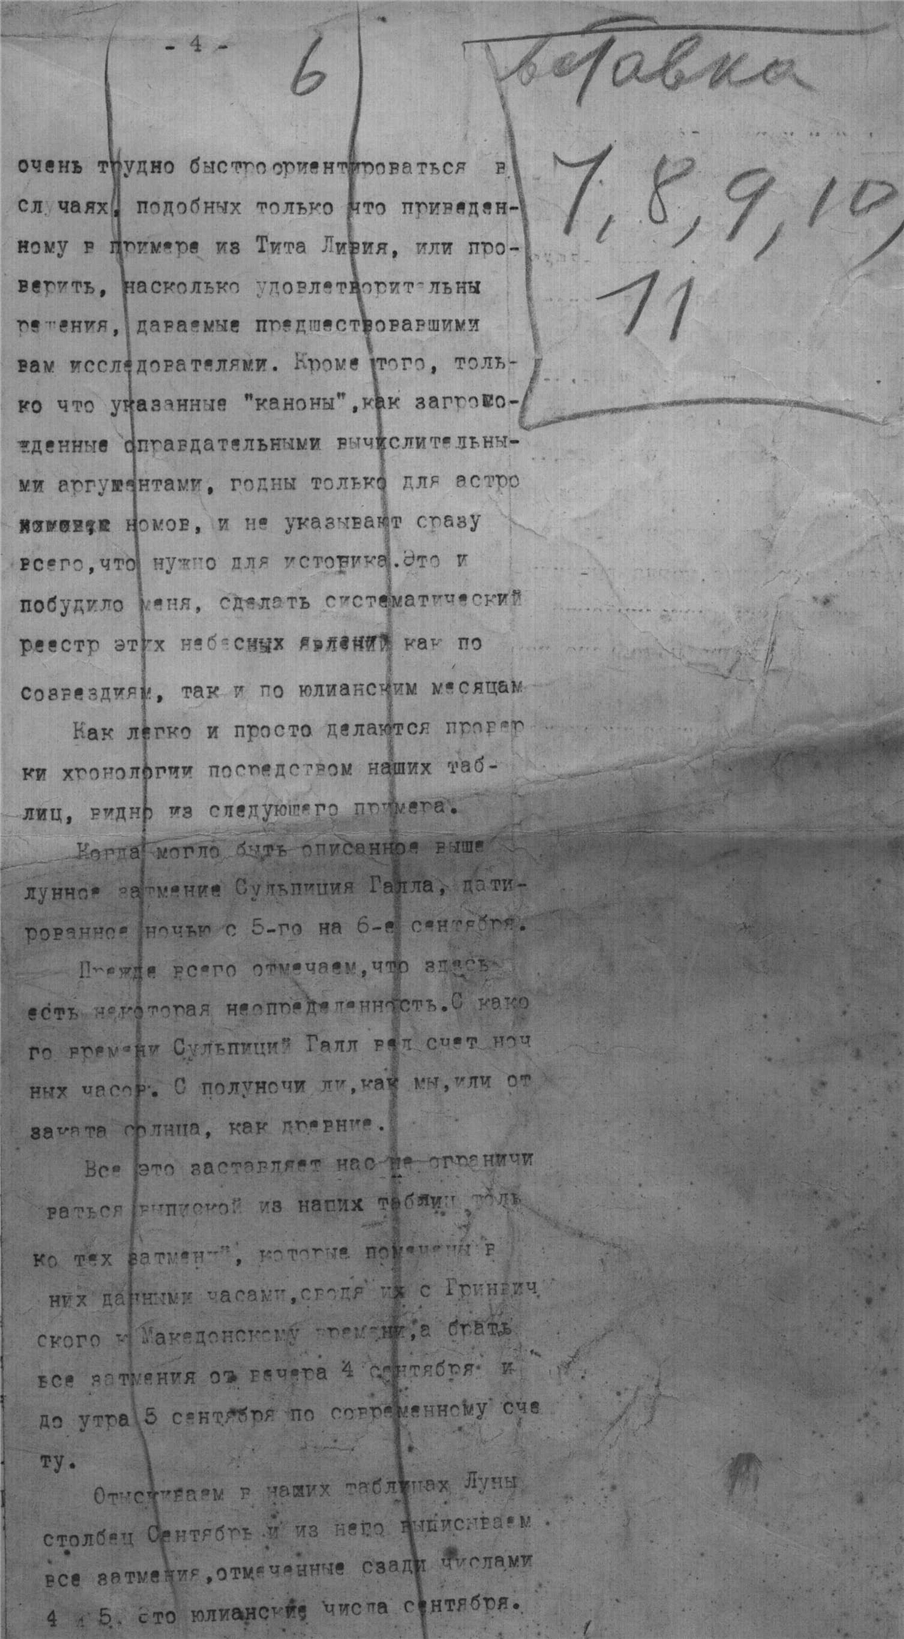 - 4 -
6
вставка
7, 8, 9, 10,
11
очень трудно быстроориентироваться в
случаях, подобных только что приведен-
ному в примере из Тита Ливия, или про-
верить, насколько удовлетворительны
решения, даваемые предшествовавшими
вам исследователями. Кроме того, толь-
ко что указанные "каноны",как загромо-
жденные оправдательными вычислительны-
ми аргументами, годны только для астро
номов, и не указывают сразу
всего,что нужно для историка.Это и
побудило меня, сделать систематический
реестр этих небесных явлений как по
созвездиям, так и по юлианским месяцам
Как легко и просто делаются провер
ки хронологии посредством наших таб-
лиц, видно из следующего примера.
Когда могло быть описанное выше
лунное затмение Сульпиция Галла, дати-
рованное ночью с 5-го на 6-е сентября.
Прежде всего отмечаем,что здесь
есть некоторая неопределенность.С како
го времени Сульпиций Галл вел счет ноч
ных часов. С полуночи ли,как мы,или от
заката солнца, как древние.
Все это заставляет нас не ограничи
ваться выпиской из наших таблиц толь
ко тех затмений, которые помечены в
них данными часами,сводя их с Гринвич
ского к Македонскому времени,а брать
все затмения от вечера 4 сентября и
до утра 5 сентября по современному сче
ту.
Отыскиваем в наших таблицах Луны
столбец Сентябрь и из него выписываем
все затмения,отмеченные сзади числами
4 и 5. Это юлианские числа сентября.